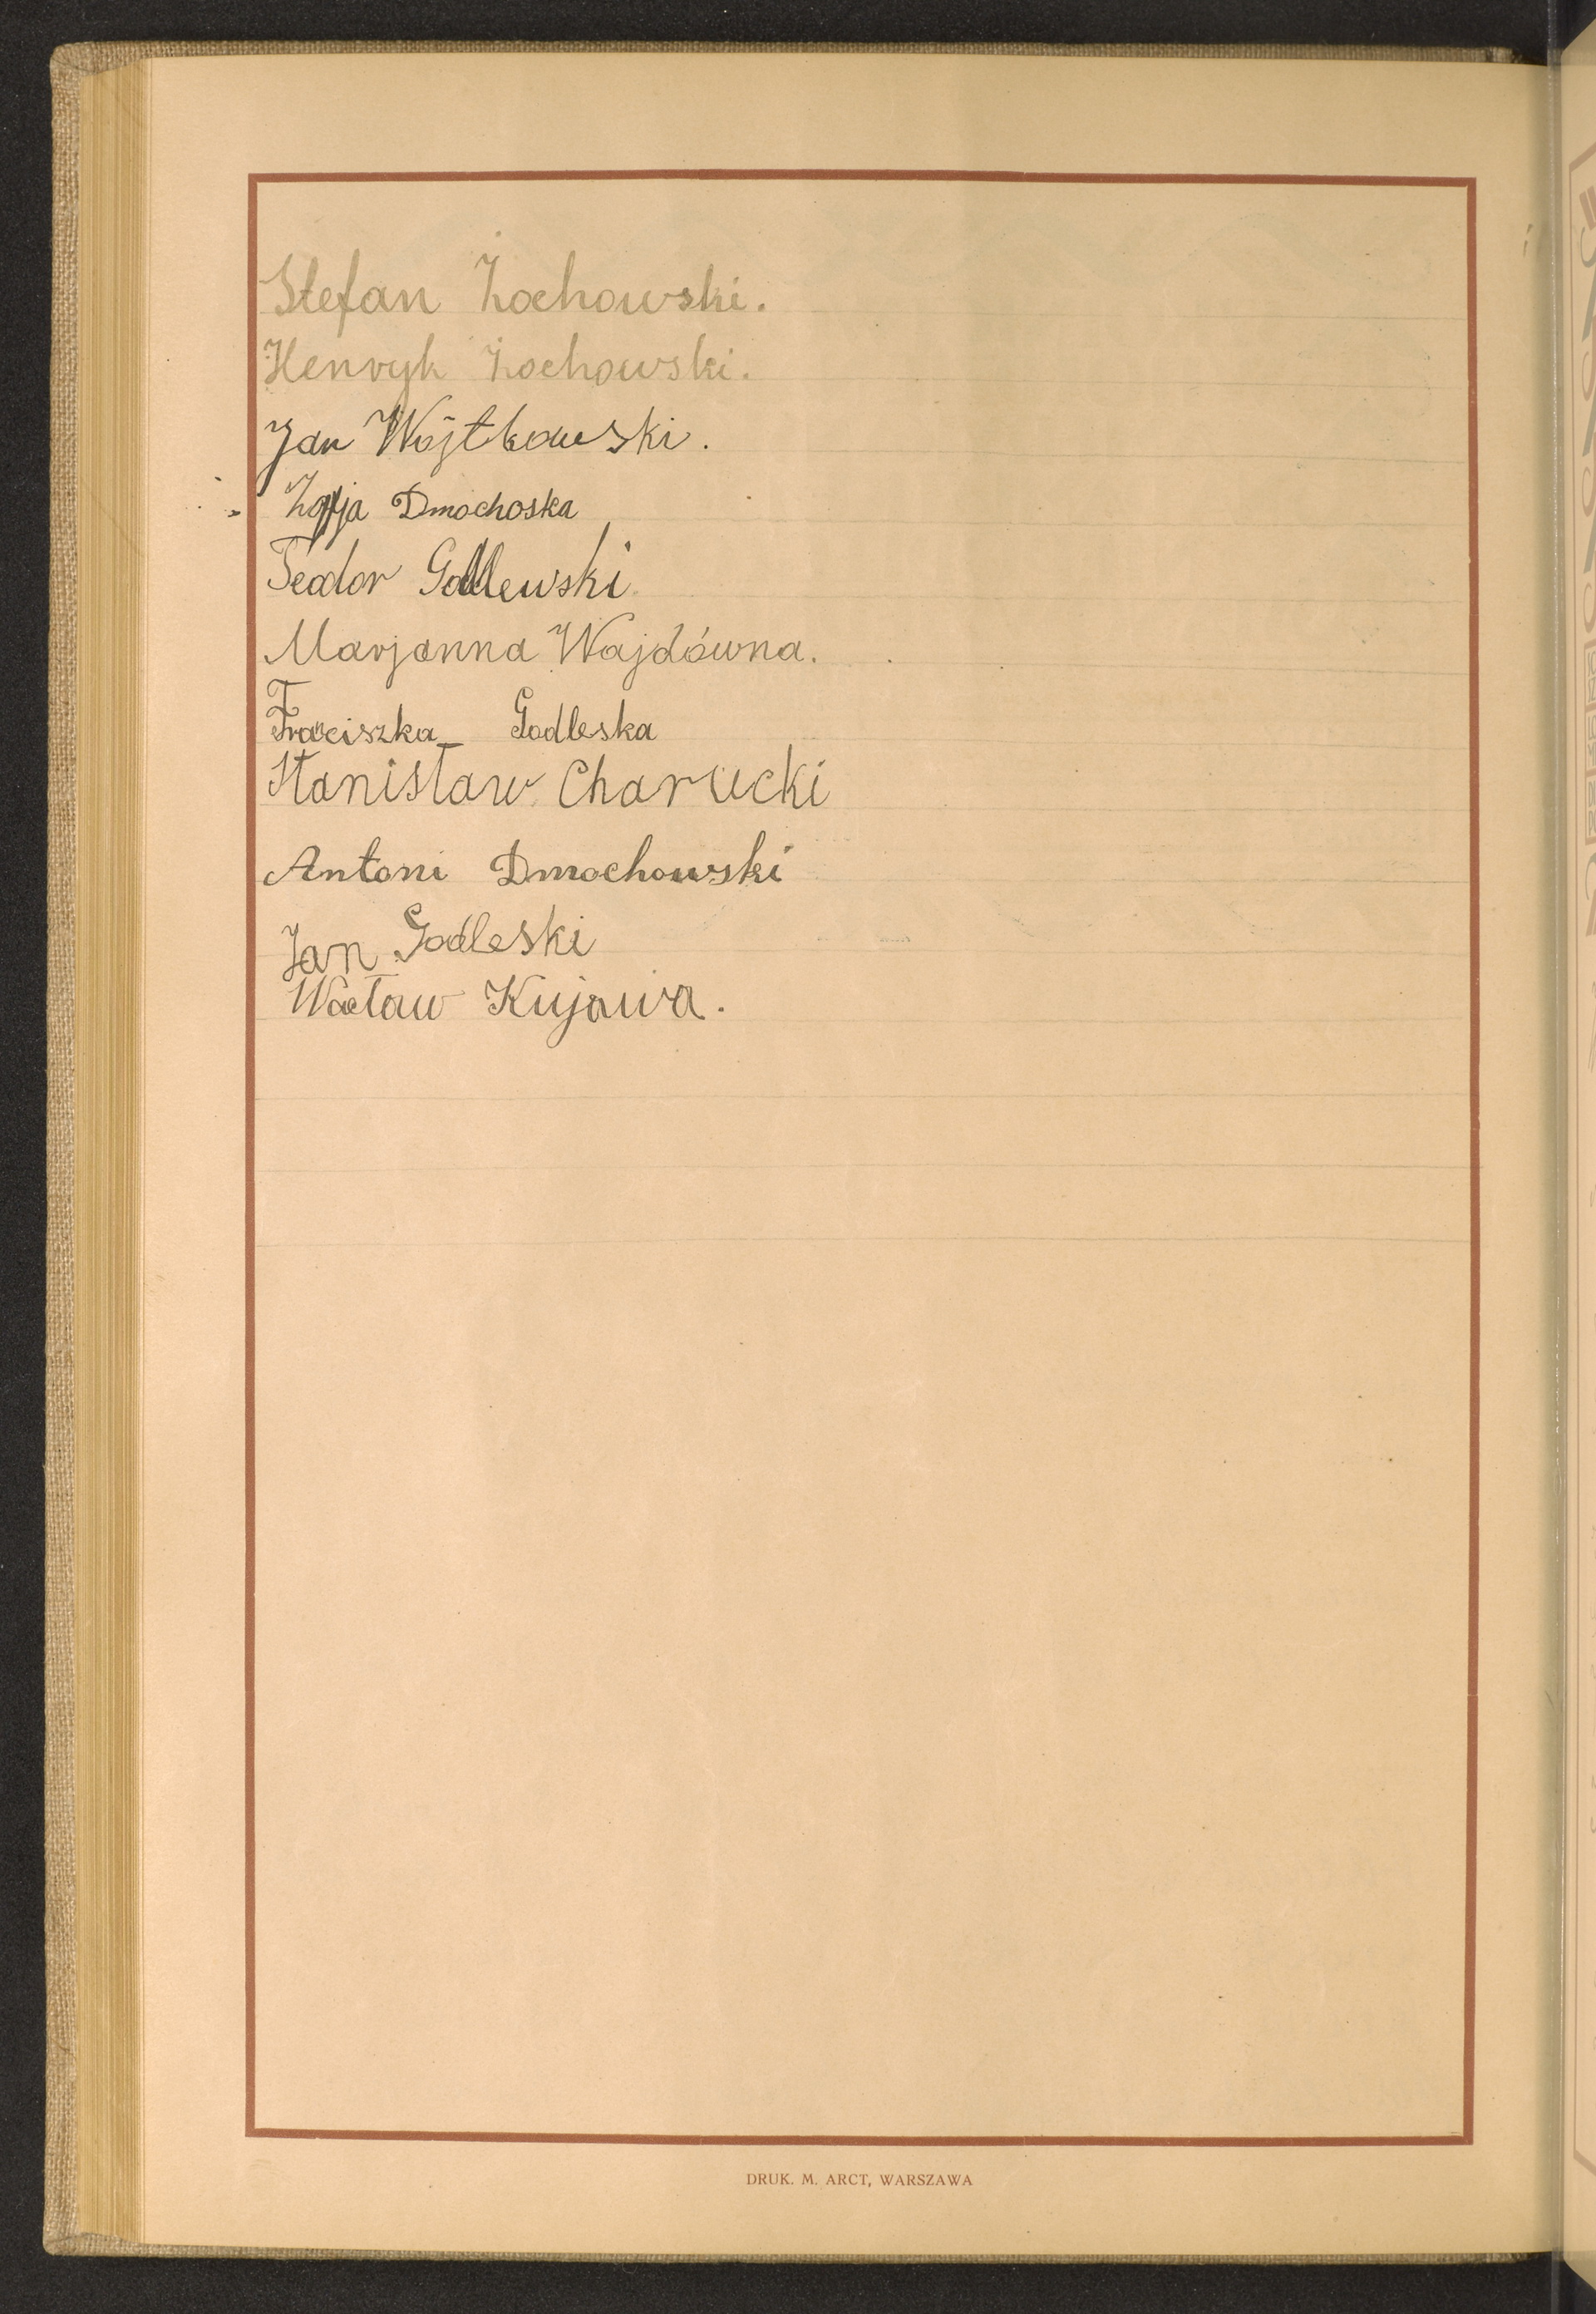 Stefan Żochowski.
Henryk Żochowski.
Jan Wojtkowski.
Zofja Dmochoska
Teodor Godlewski
Marjanna Wajdówna.
Fraciszka Godleska
Stanisław Charucki
Antoni Dmochowski
Jan Godleski
Wacław Kujawa.
DRUK. M. ARCT, WARSZAWA